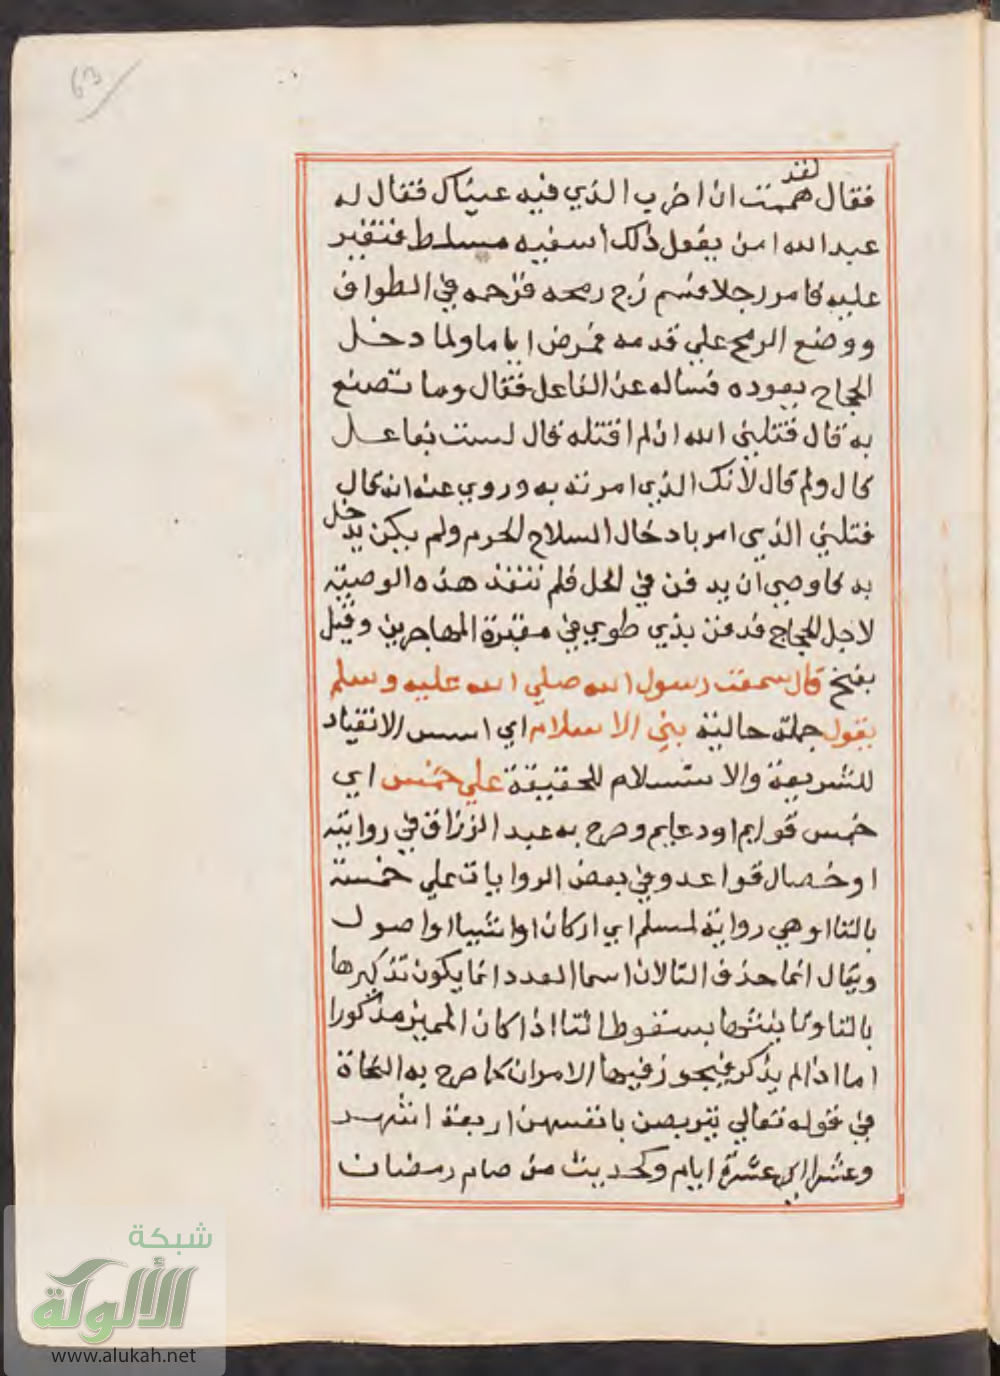 63
فقال لقد هممت ان اضرب الذي فيه عيناك فقال له
عبد الله امن يفعل ذلك اسفيه مسلط فتغير
عليه فامر رجلا فسم زج رمحه فزحمه في الطواف
ووضع الرمح علي قدمه فمرض اياما ولما دخل
الحجاج يعوده فساله عن الفاعل فقال وما تصنع
به قال قتلني الله ان لم اقتله قال لست بفاعل
قال ولم قال لانك الذي امرته به وروي عنه انه قال
قتلني الذي امر بادخال السلاح الحرم ولم يكن يدخل
به فاوصي ان يدفن في الحل فلم تنفذ هذه الوصية
لاجل الحجاج فدفن بذي طوي في مقبرة المهاجرين وقيل
بفخ قال سمعت رسول الله صلي الله عليه وسلم
يقول جملة حالية بني الاسلام اي اسس الانقياد
للشريعة والاستسلام للحقيقة علي خمس اي
خمس قوايم او دعايم وصرح به عبد الرزاق في روايته
او خصال قواعد وفي بعض الروايات علي خمسة
بالتا وهي رواية لمسلم اي اركان او اشيا او اصول
ويقال انما حذف التا لان اسما العدد انما يكون تذكيرها
بالتا وتانيثها بسقوط التا اذا كان المميز مذكورا
اما اذا لم يذكر فيجوز فيها الامران كما صرح به النحاة
في قوله تعالي يتربصن بانفسهن اربعة اشهر
وعشرا اي عشرة ايام وكحديث من صام رمضان
شبكة
الألوكة
www.alukah.net